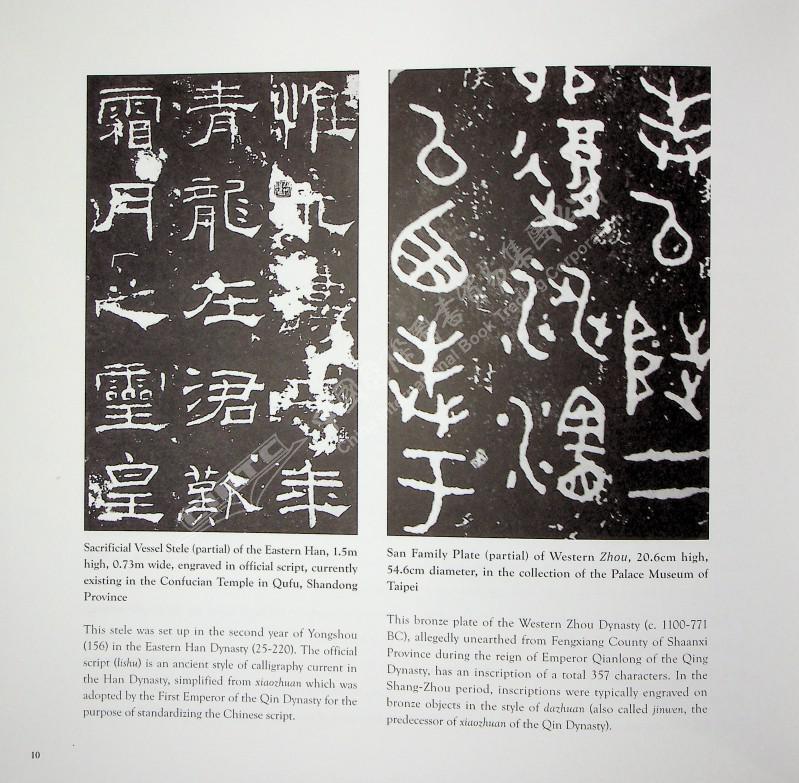 惟
年
青龍在涒歎
霜月之靈皇
奉以陟二
復涉瀗
以西奉于
China International Book Trading Corporation
Sacrificial Vessel Stele (partial) of the Eastern Han, 1.5m
high, 0.73m wide, engraved in official script, currently
existing in the Confucian Temple in Qufu, Shandong
Province
This stele was set up in the second year of Yongshou
(156) in the Eastern Han Dynasty (25-220). The official
script (lishu) is an ancient style of calligraphy current in
the Han Dynasty, simplified from xiaozhuan which was
adopted by the First Emperor of the Qin Dynasty for the
purpose of standardizing the Chinese script.
San Family Plate (partial) of Western Zhou, 20.6cm high,
54.6cm diameter, in the collection of the Palace Museum of
Taipei
This bronze plate of the Western Zhou Dynasty (c. 1100-771
BC), allegedly unearthed from Fengxiang County of Shaanxi
Province during the reign of Emperor Qianlong of the Qing
Dynasty, has an inscription of a total 357 characters. In the
Shang-Zhou period, inscriptions were typically engraved on
bronze objects in the style of dazhuan (also called jinwen, the
predecessor of xiaozhuan of the Qin Dynasty).
10